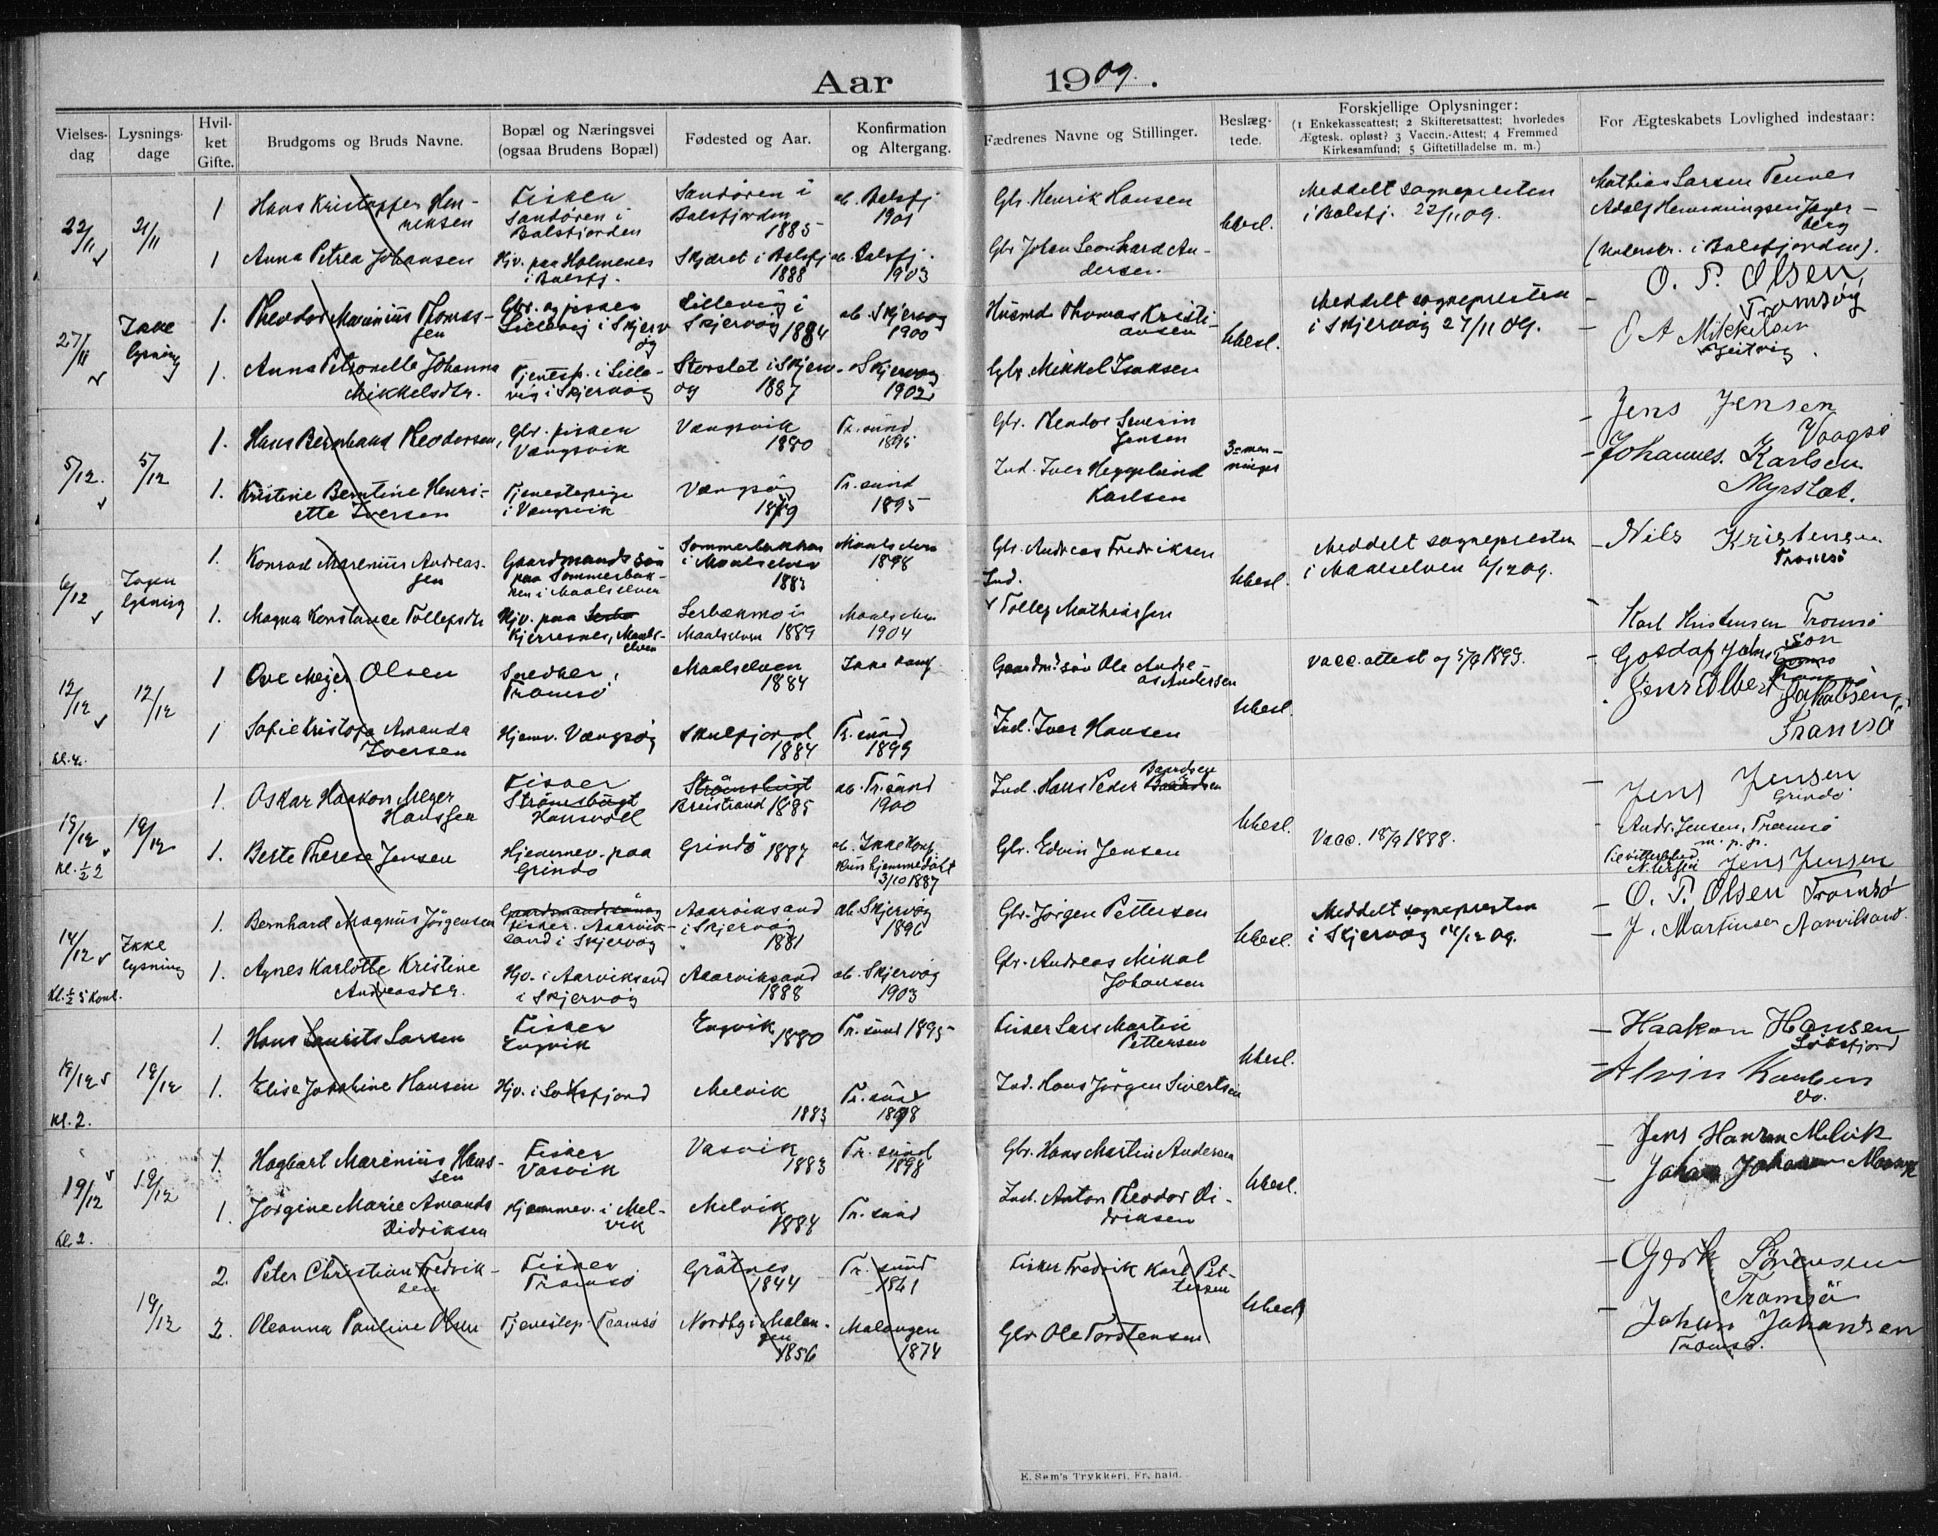 Aar 1909.
Vielses-dag
Lysnings-dage
Hvilket Gifte.
Brudgoms og Bruds Navne.
Bopæl og Næringsvei
(ogsaa Brudens Bopæl)
Fødested og Aar.
Konfirmation
og Altergang.
Fædrenes Navne og Stillinger.
Beslæg-
tede.
Forskjellige Oplysninger:
(1 Enkekasseattest; 2 Skifteretsattest; hvorledes
Ægtesk. opløst? 3 Vaccin.-Attest; 4 Fremmed
Kirkesamfund; 5 Giftetilladelse m. m.)
For Ægteskabets Lovlighed indestaar:
22/11
21/11
1
Hans Kristoffer Hen-
riksen
Fisker
Sandören i
Balsfjorden
Sandören i
Balsfjorden
1885
ab. Balsfj.
1901
Gbr. Henrik Hansen
Ubesl.
Meddelt sognepresten
i Balsfj. 22/11 09.
Mathias Larsen Tennes
Adolf Hemmingsen
1
Anna Petrea Johansen
Hjv. paa Holmenes
i Balsfj.
Skjæret i Balsfj
1888
ab. Balsfj.
1903
Gbr Johan Leonhard An-
dersen.
(Underskr. i Balsfjorden).
27/11
Ikke
lysning
1.
Theodor Marinius Thomas-
sen
Gbr. og fisker
Lillevig i Skjerv
øg
Lillevig i
Skjervøg 1884
ab. Skjervøg
1900
Husmd Thomas Kristi-
ansen
Ubesl.
Meddelt sognepresten
i Skjervøg 27/11 09.
O. P. Olsen
Tromsøg
O A Mikkelsen
1.
Anna Petronelle Johanna
Mikkelsdtr.
Tjenestp. i Lille-
vig i Skjervøg
Storslet i Skjerv-
øg 1887
Skjervøg
1902
Gbr. Mikkel Isaksen
5/12.
5/12
1.
Hans Bernhard Theodorsen,
Gbr. fisker
Vængsvik
Vængsvik
1880
Tr.sund
1895
Gbr. Theodor Severin
Jensen
3-men-
ninger
Jens Jensen
Vaagsø
1.
Kristine Berntine Henri-
ette Iversen
Tjenestepige
i Vængsvik
Vængsøg
1879
Tr.sund
1895
Ind. Iver Heggelund
Karlsen
Johannes Karlsen
Myrslet.
6/12
Ingen
lysning
1.
Konrad Marenius Andreas-
sen
Gaardmands søn
paa Sommerbak-
ken i Maalselven
Sommerbakken
i Maalselven
1883
Maalselven
1898
Gbr. Andreas Fredriksen
Ubesl.
Meddelt sognepresten
i Maalselven 6/12 09.
Nils Kristensen
Tromsø
1.
Magna Konstance Tollefsdtr
Hjv. paa
Kjerresnes, Maals-
elven
Serbækmo i
Maalselven 1889
Maalselven
1904
Ind.
Tollef Mathiassen
Karl Kristensen Tromsø
12/12
Kl. 4.
12/12
1
Ove Mejer Olsen
Snedker,
Tromsø
Maalselven
1884
Ikke konf.
Gaardm. søn Ole Andre-
as Andersen
Ubesl.
Vacc. attest 1899.
Gosdaf Johnson
1
Sofie Kristofa Amanda
Iversen
Hjemv. Vængsøg
Skulfjord
1884
Tr. sund
1899
Ind. Iver Hansen
Jens Albert Jakobsen
Tromsø
19/12
Kl. ½ 2
19/12
1.
Oskar Haakon Meyer
Hanssen
Fisker
Strömsbugt
Hansvoll
Strömsbugt
Breistrand 1885
ab. Tr.sund
1900
Ind. Hans Peder Baardsen
Ubesl.
Jens Jensen
Grindø
1.
Berte Therese Jensen
Hjemmev. paa
Grindø
Grindö 1887
ab. Ikke konf.
kun hjemmedøbt
3/10 1887
Gbr. Edvin Jensen
Vacc. 18/9 1888.
Andr. Jensen, Tromsø
m. p. p.
Til vitterlighed
Jens Jensen
14/12
Kl. ½ 5 Kont.
Ikke
lysning
1.
Bernhard Magnus Jörgensen
Gaardmandssønog
fisker. Aarvik-
sand i Skjervøg
Aarviksand
i Skjervøg
1881
ab. Skjervøg
1896
Gbr. Jörgen Pettersen
Ubesl.
Meddelt sognepresten
i Skjervøg 14/12 09.
O. P. Olsen Tromsø
J. Martinsen Aarviksand.
1.
Agnes Karlotte Kristine
Andreasdtr.
Hjv. i Aarviksand
i Skjervøg
Aarviksand
1888
ab. Skjervøg
1903
Gbr. Andreas Mikal
Johansen
19/12
Kl. 2.
19/12
1.
Hans Laurits Larsen
Fisker
Engvik
Engvik
1880
Tr. sund 1895
Fisker Lars Martin
Pettersen
Ubesl.
Haakon Hansen
Loksfjord
1.
Elise Jakobine Hansen
Hjv. i Loksfjord
Melvik
1883
Tr. sund
1898
Ind. Hans Jörgen Sivertsen
Alvin
Do.
19/12
Kl. 2.
19/12
1.
Hagbart Marenius Hans-
sen
Fisker
Vasvik
Vasvik
1883
Tr. sund
1898
Gbr. Hans Martin Andersen
Ubesl.
Jens Hansen Melvik
1.
Jörgine Marie Amanda
Didriksen
Hjemmev. i Mel-
vik
Melvik
1884
Tr. sund
Ind. Anton Theodor Di-
driksen
Johan Johansen
19/12
2.
Peter Christian Fredrik-
sen
Fisker
Tromsø
Gråtnes
1844
Tr. sund
1861
Fisker Fredrik Karl Pet-
tersen
Ubesl
Gerh Sørensen
Tromsø
2.
Oleanna Pauline Olsen
Tjenestep. Tromsø
Nordby i Malan-
gen
1856
Malangen
1874
Gbr Ole Torstensen
Johan Johansen
Tromsø.
E. Sem's Trykkeri, Fr.hald.